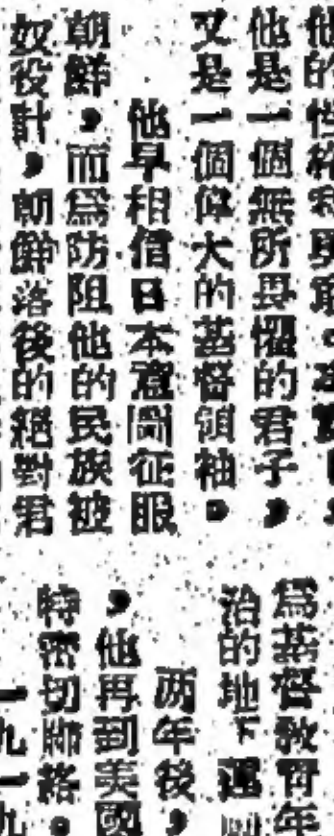 他是一個無所畏懼的君子，
又是一個偉大的基督領袖。
他早相信日本意圖征服
朝鮮，而爲防阻他的民族被
奴役計，朝鮮落後的絕對君
爲基督教青年
治的地下運
两年後，
，他再到美國
特密切聯絡。
一九一九